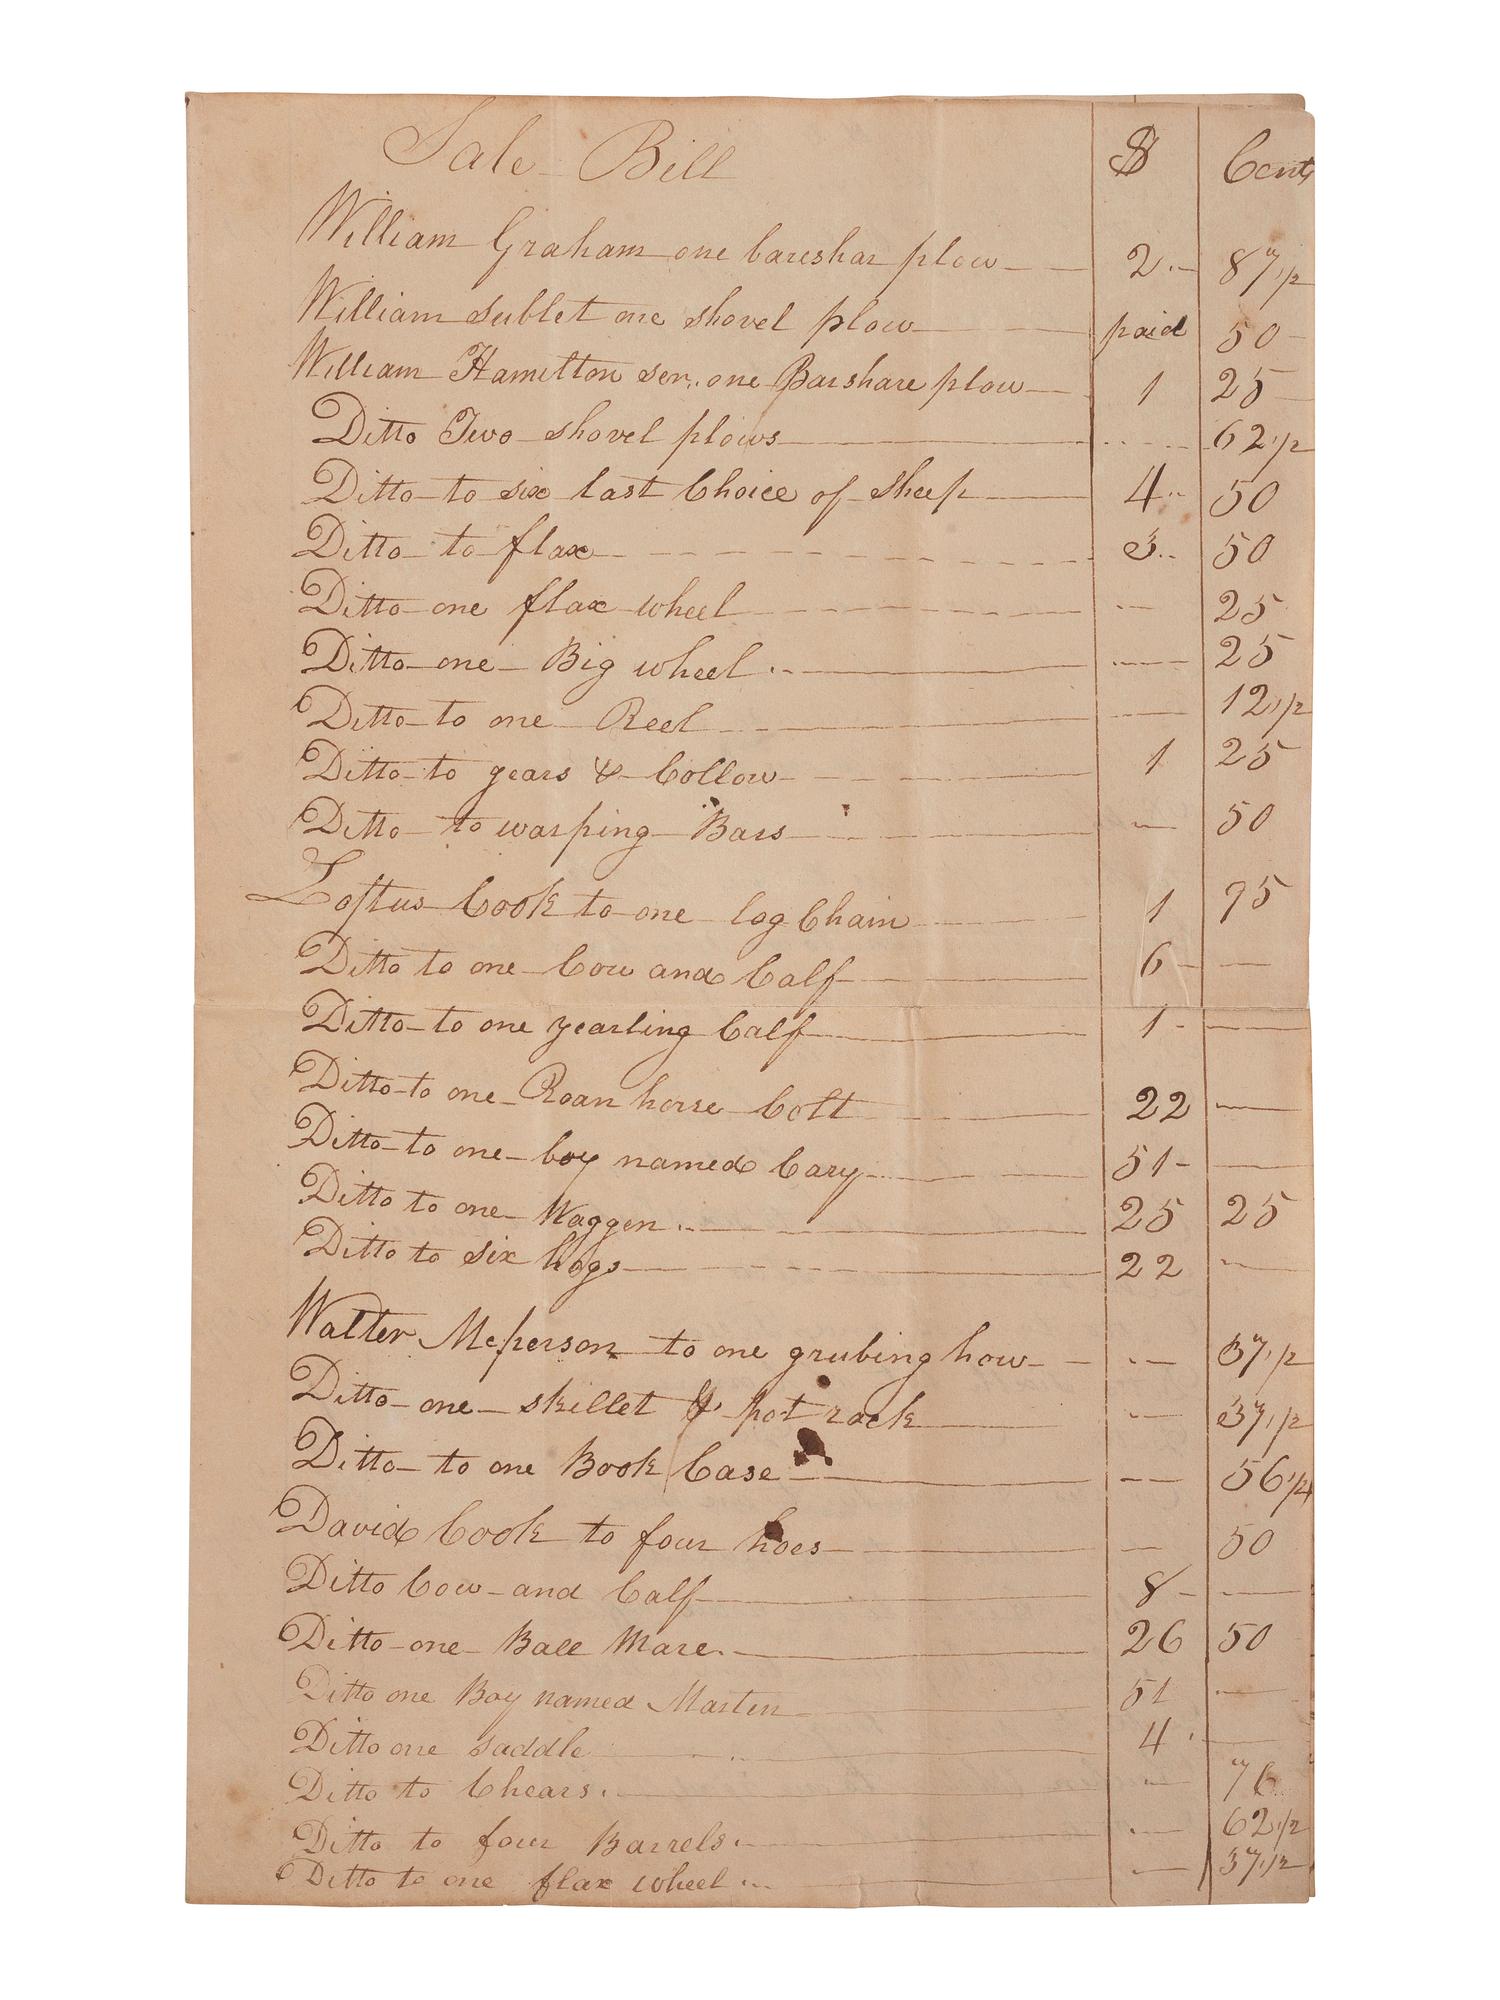 Sale Bill $ Cents
William Graham one bareshar plow 2 87 1/2
William Sublet one shovel plow paid 50
William Hamilton sen. one Barshare plow 1 25
Ditto Two shovel plows 62 1/2
Ditto to six last Choice of sheep 4 50
Ditto to flax 3 50
Ditto one flax wheel 25
Ditto one Big wheel 25
Ditto to one Reel 12 1/2
Ditto to gears & Collow 1 25
Ditto to warping Bars 50
Loftus Cook to one log Chain 1 75
Ditto to one Cow and Calf 6
Ditto to one yearling Calf 1
Ditto to one Roan horse Colt 22
Ditto to one boy named Cary 51
Ditto to one Waggen 25 25
Ditto to six hogs 22
Walter Mcperson to one grubing how 37 1/2
Ditto one skillet & pot rack 37 1/2
Ditto to one Book Case 56 1/4
David Cook to four hoes 50
Ditto Cow and Calf 8
Ditto one Ball Mare 26 50
Ditto one Boy named Marten 51
Ditto one saddle 4
Ditto to Chears 76
Ditto to four Barrels 62 1/2
Ditto to one flax wheel 37 1/2